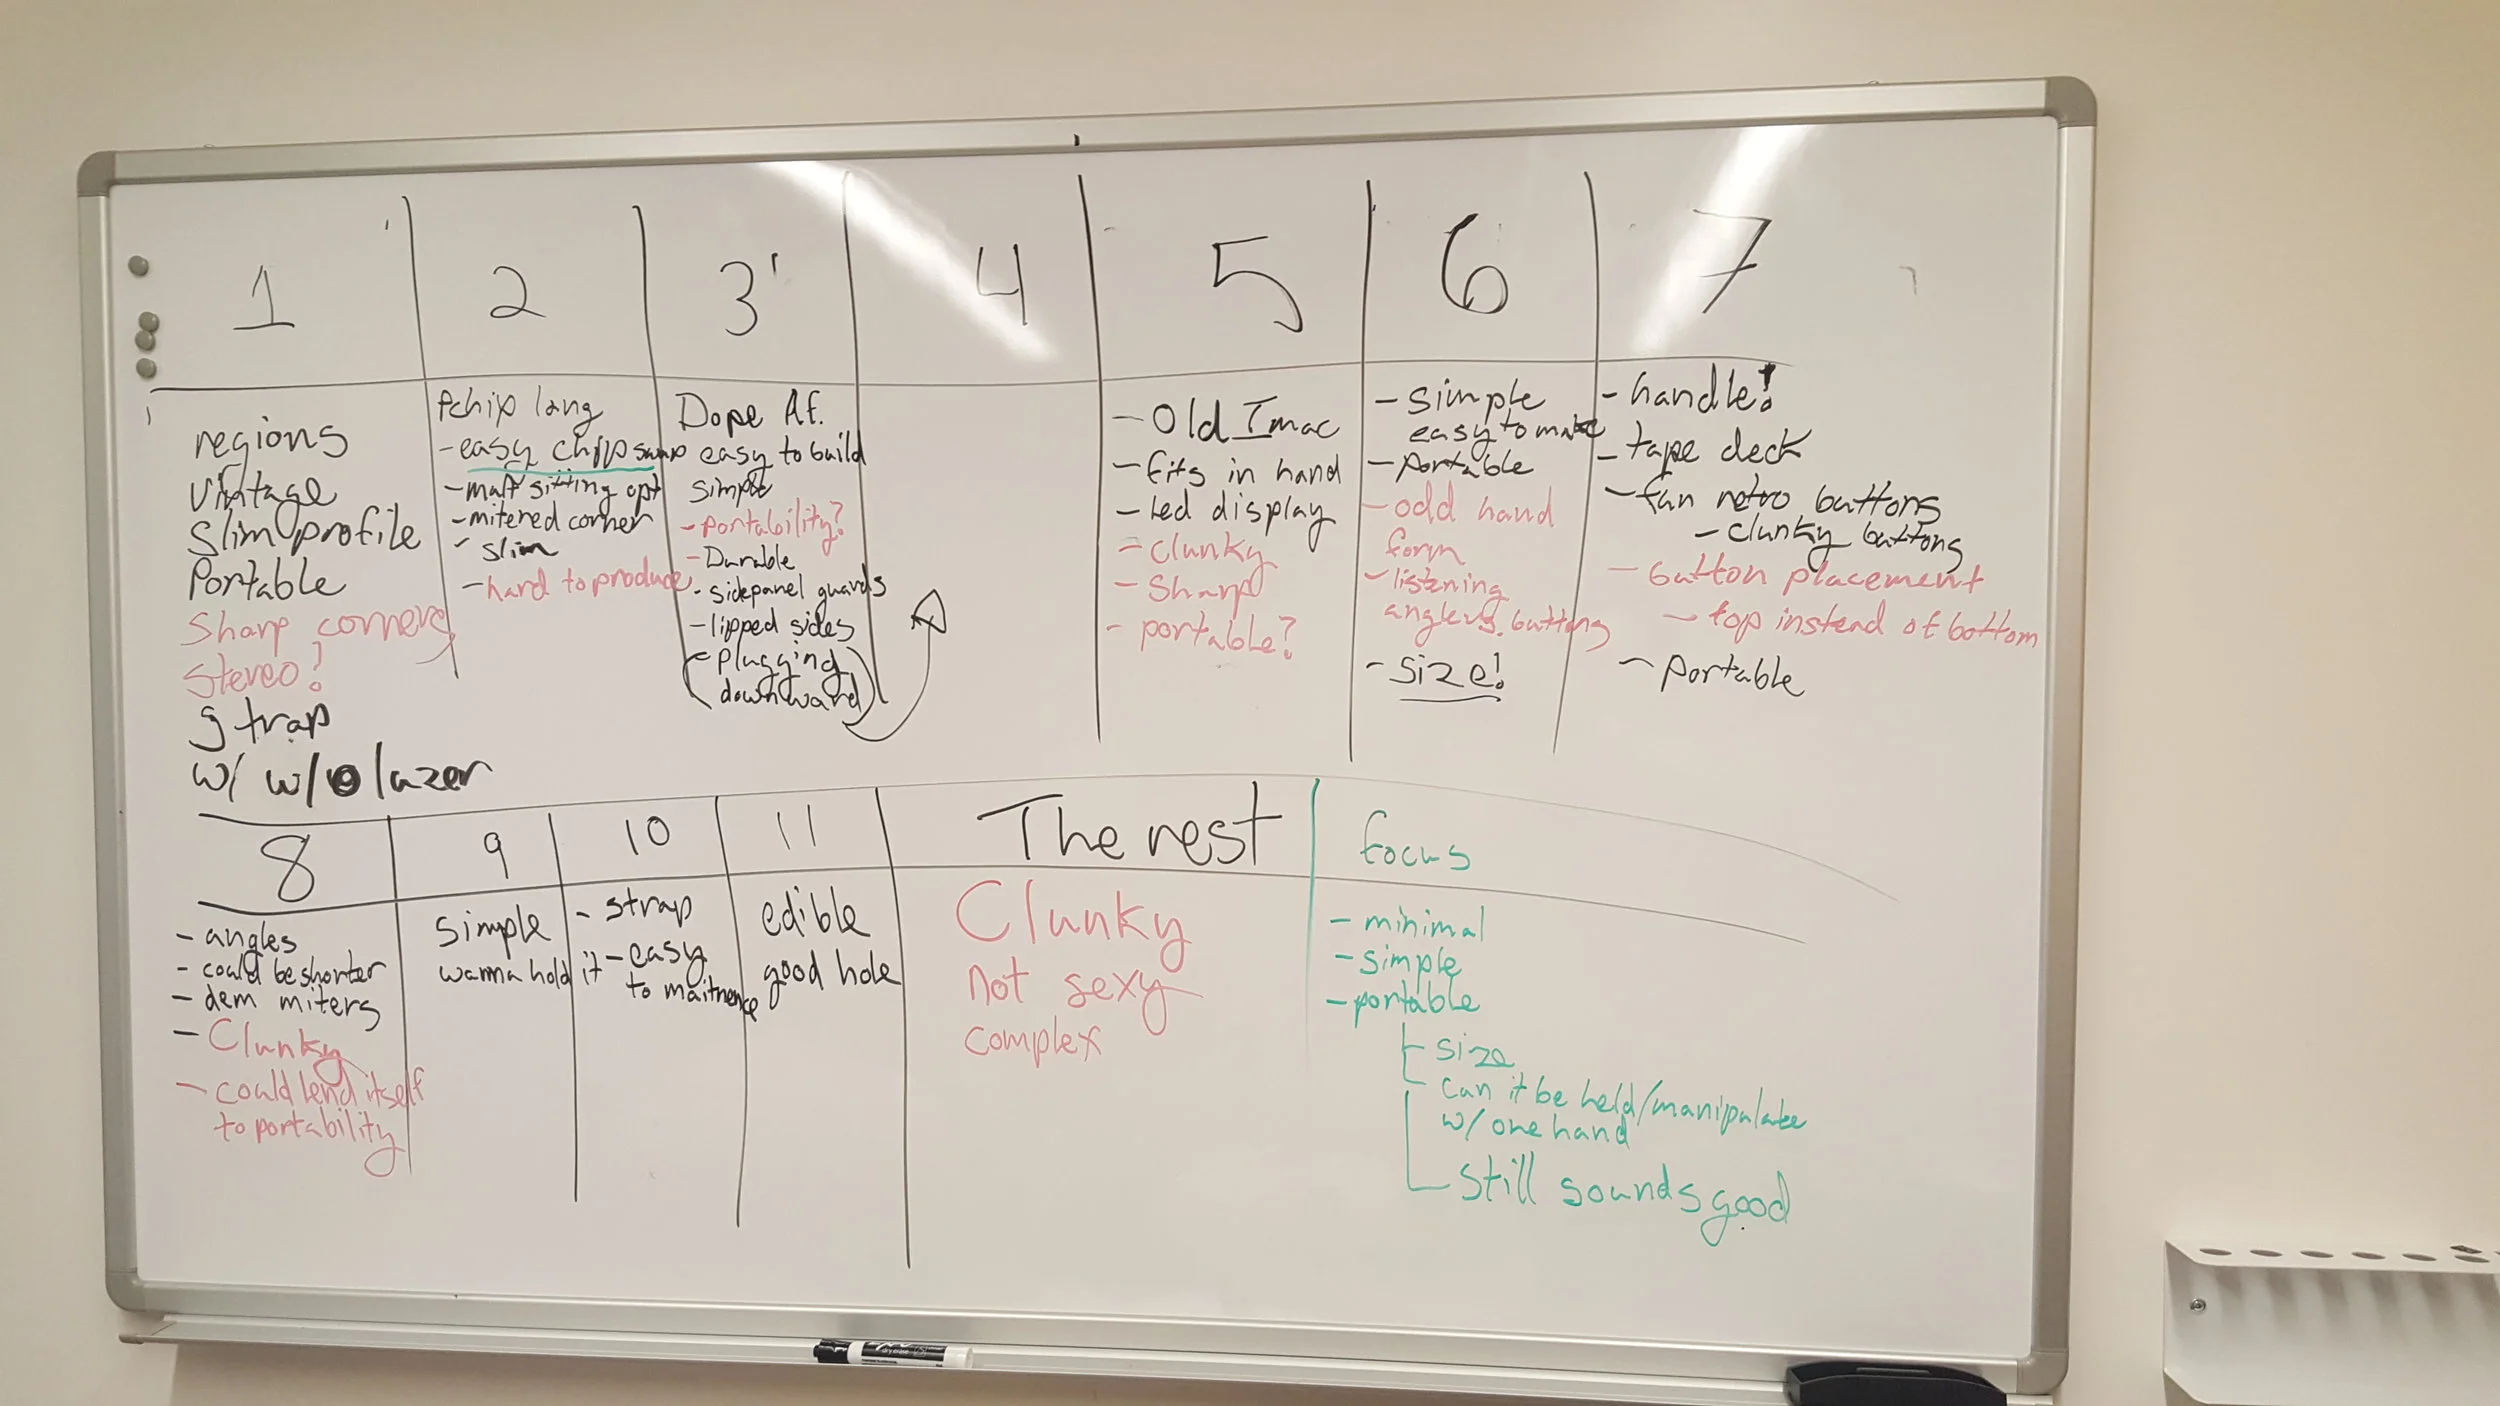 1
regions
vintage
Slim profile
Portable
Sharp corners
stereo?
strap
w/ w/o lazer
2
lang
- easy chip swap
- sitting opt
- mitered corner
- slim
- hard to produce
3
Dope Af.
easy to build
simple
- portability?
- Durable
- sidepanel guards
- lipped sides
(- plugging
downward)
4
5
- Old Imac
- fits in hand
- Led display
- clunky
- Sharp
- portable?
6
- simple
easy to make
- portable
- odd hand
form
- listening
angle vs. buttons
- size!
7
- handle!
- tape deck
- fun retro buttons
- clunky buttons
- button placement
- top instead of bottom
- portable
8
- angles
- could be shorter
- dem miters
- Clunky
- could lend itself
to portability
9
simple
wanna hold it
10
- strap
- easy
to maitnence
11
edible
good hole
The rest
Clunky
not sexy
complex
focus
- minimal
- simple
- portable
- size
can it be held/manipulate
w/ one hand
still sounds good